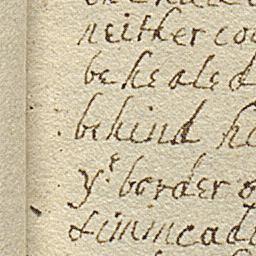 neither cou
be healed
behind hi
yᵉ border o
& immeadi